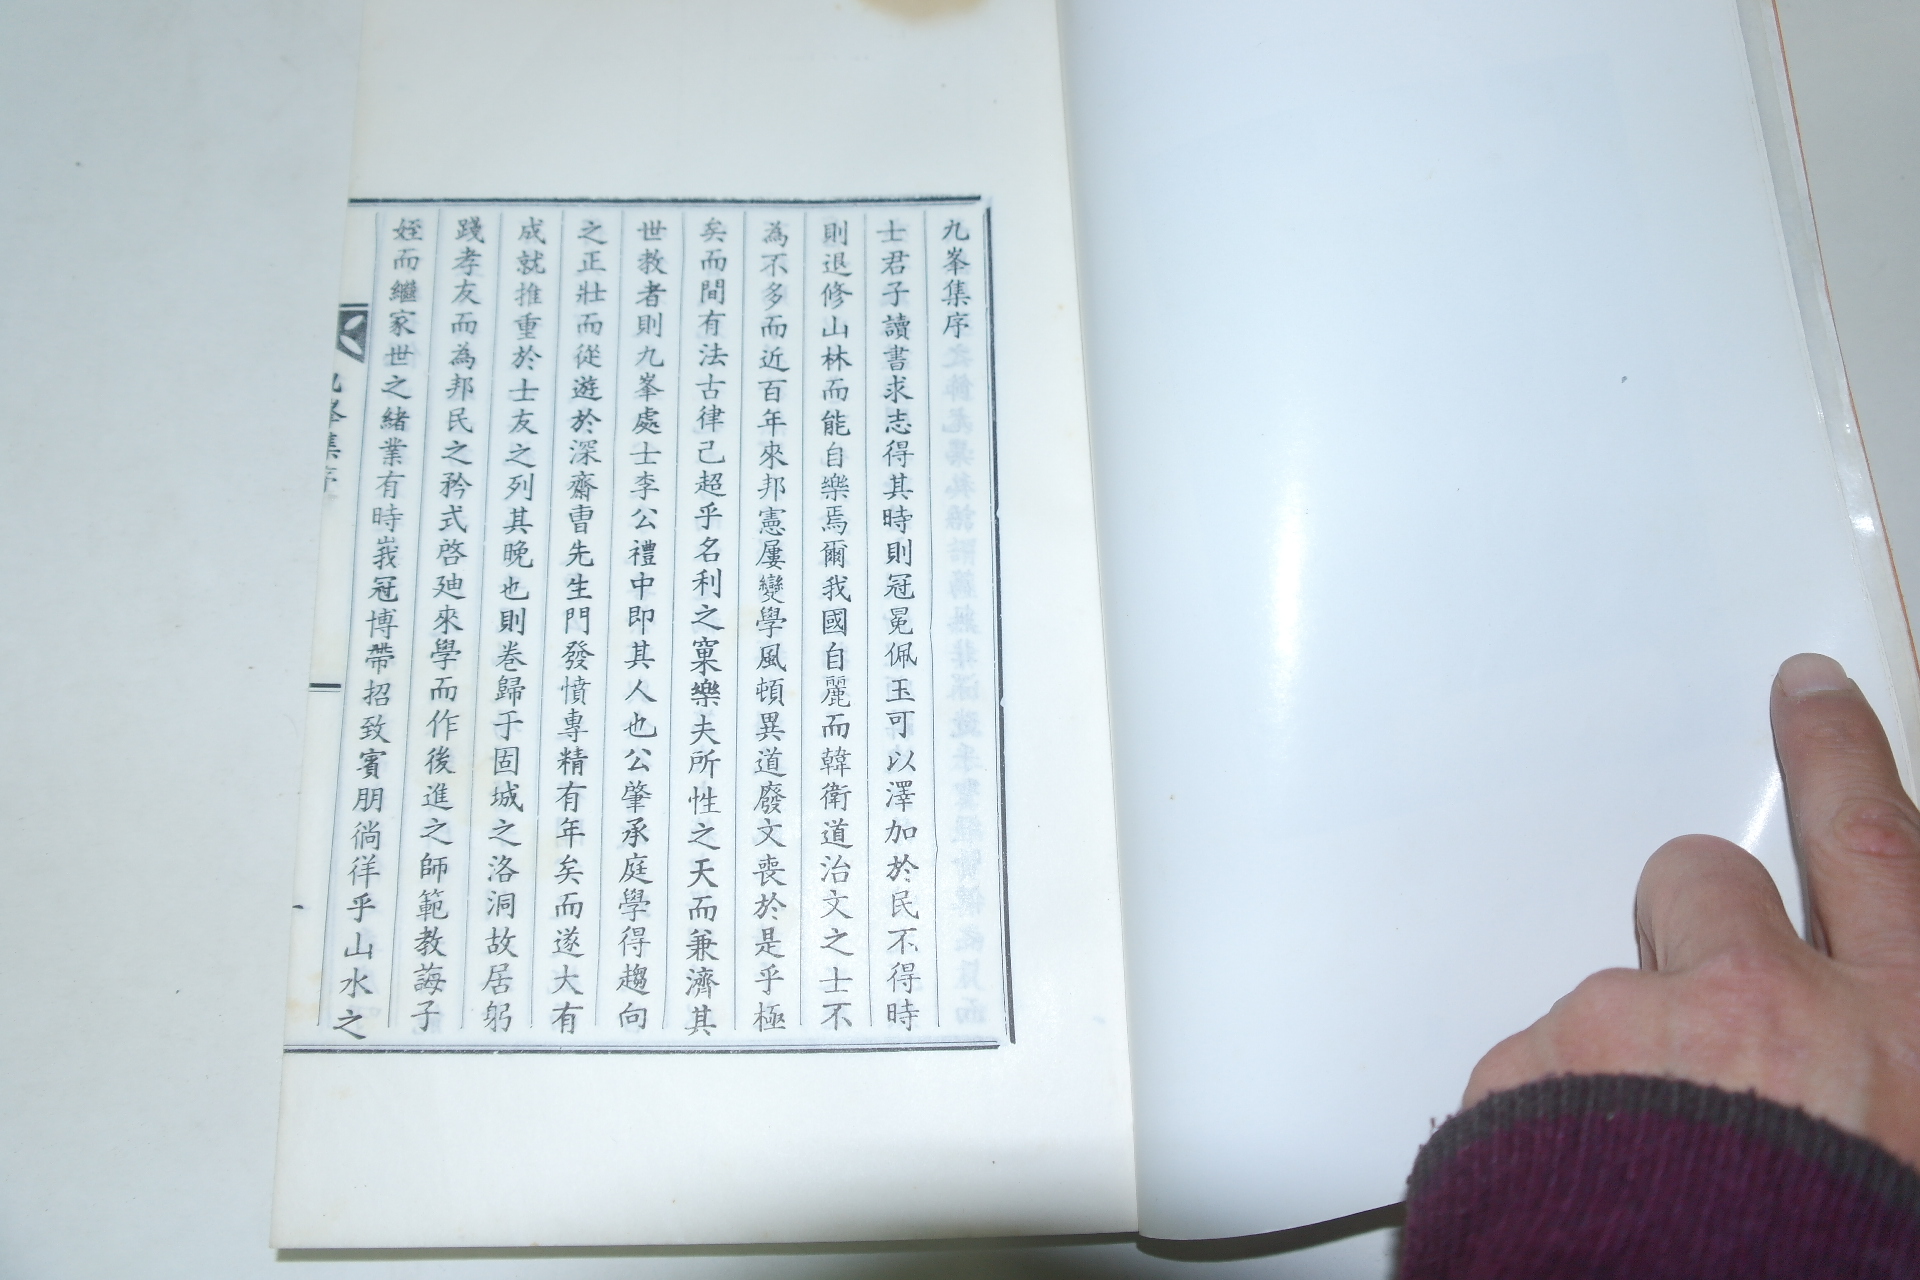 九峯集序
士君子讀書求志得其時則冠冕佩玉可以澤加於民不得時
則退修山林而能自樂焉爾我國自麗而韓衛道治文之士不
為不多而近百年來邦憲屢變學風頓異道廢文喪於是乎極
矣而間有法古律己超乎名利之窠樂夫所性之天而兼濟其
世教者則九峯處士李公禮中即其人也公肇承庭學得趨向
之正壯而從遊於深齋曺先生門發憤專精有年矣而遂大有
成就推重於士友之列其晚也則卷歸于固城之洛洞故居躬
踐孝友而為邦民之矜式啓廸來學而作後進之師範教誨子
姪而繼家世之緒業有時峩冠博帶招致賓朋徜徉乎山水之
九峯集序
一